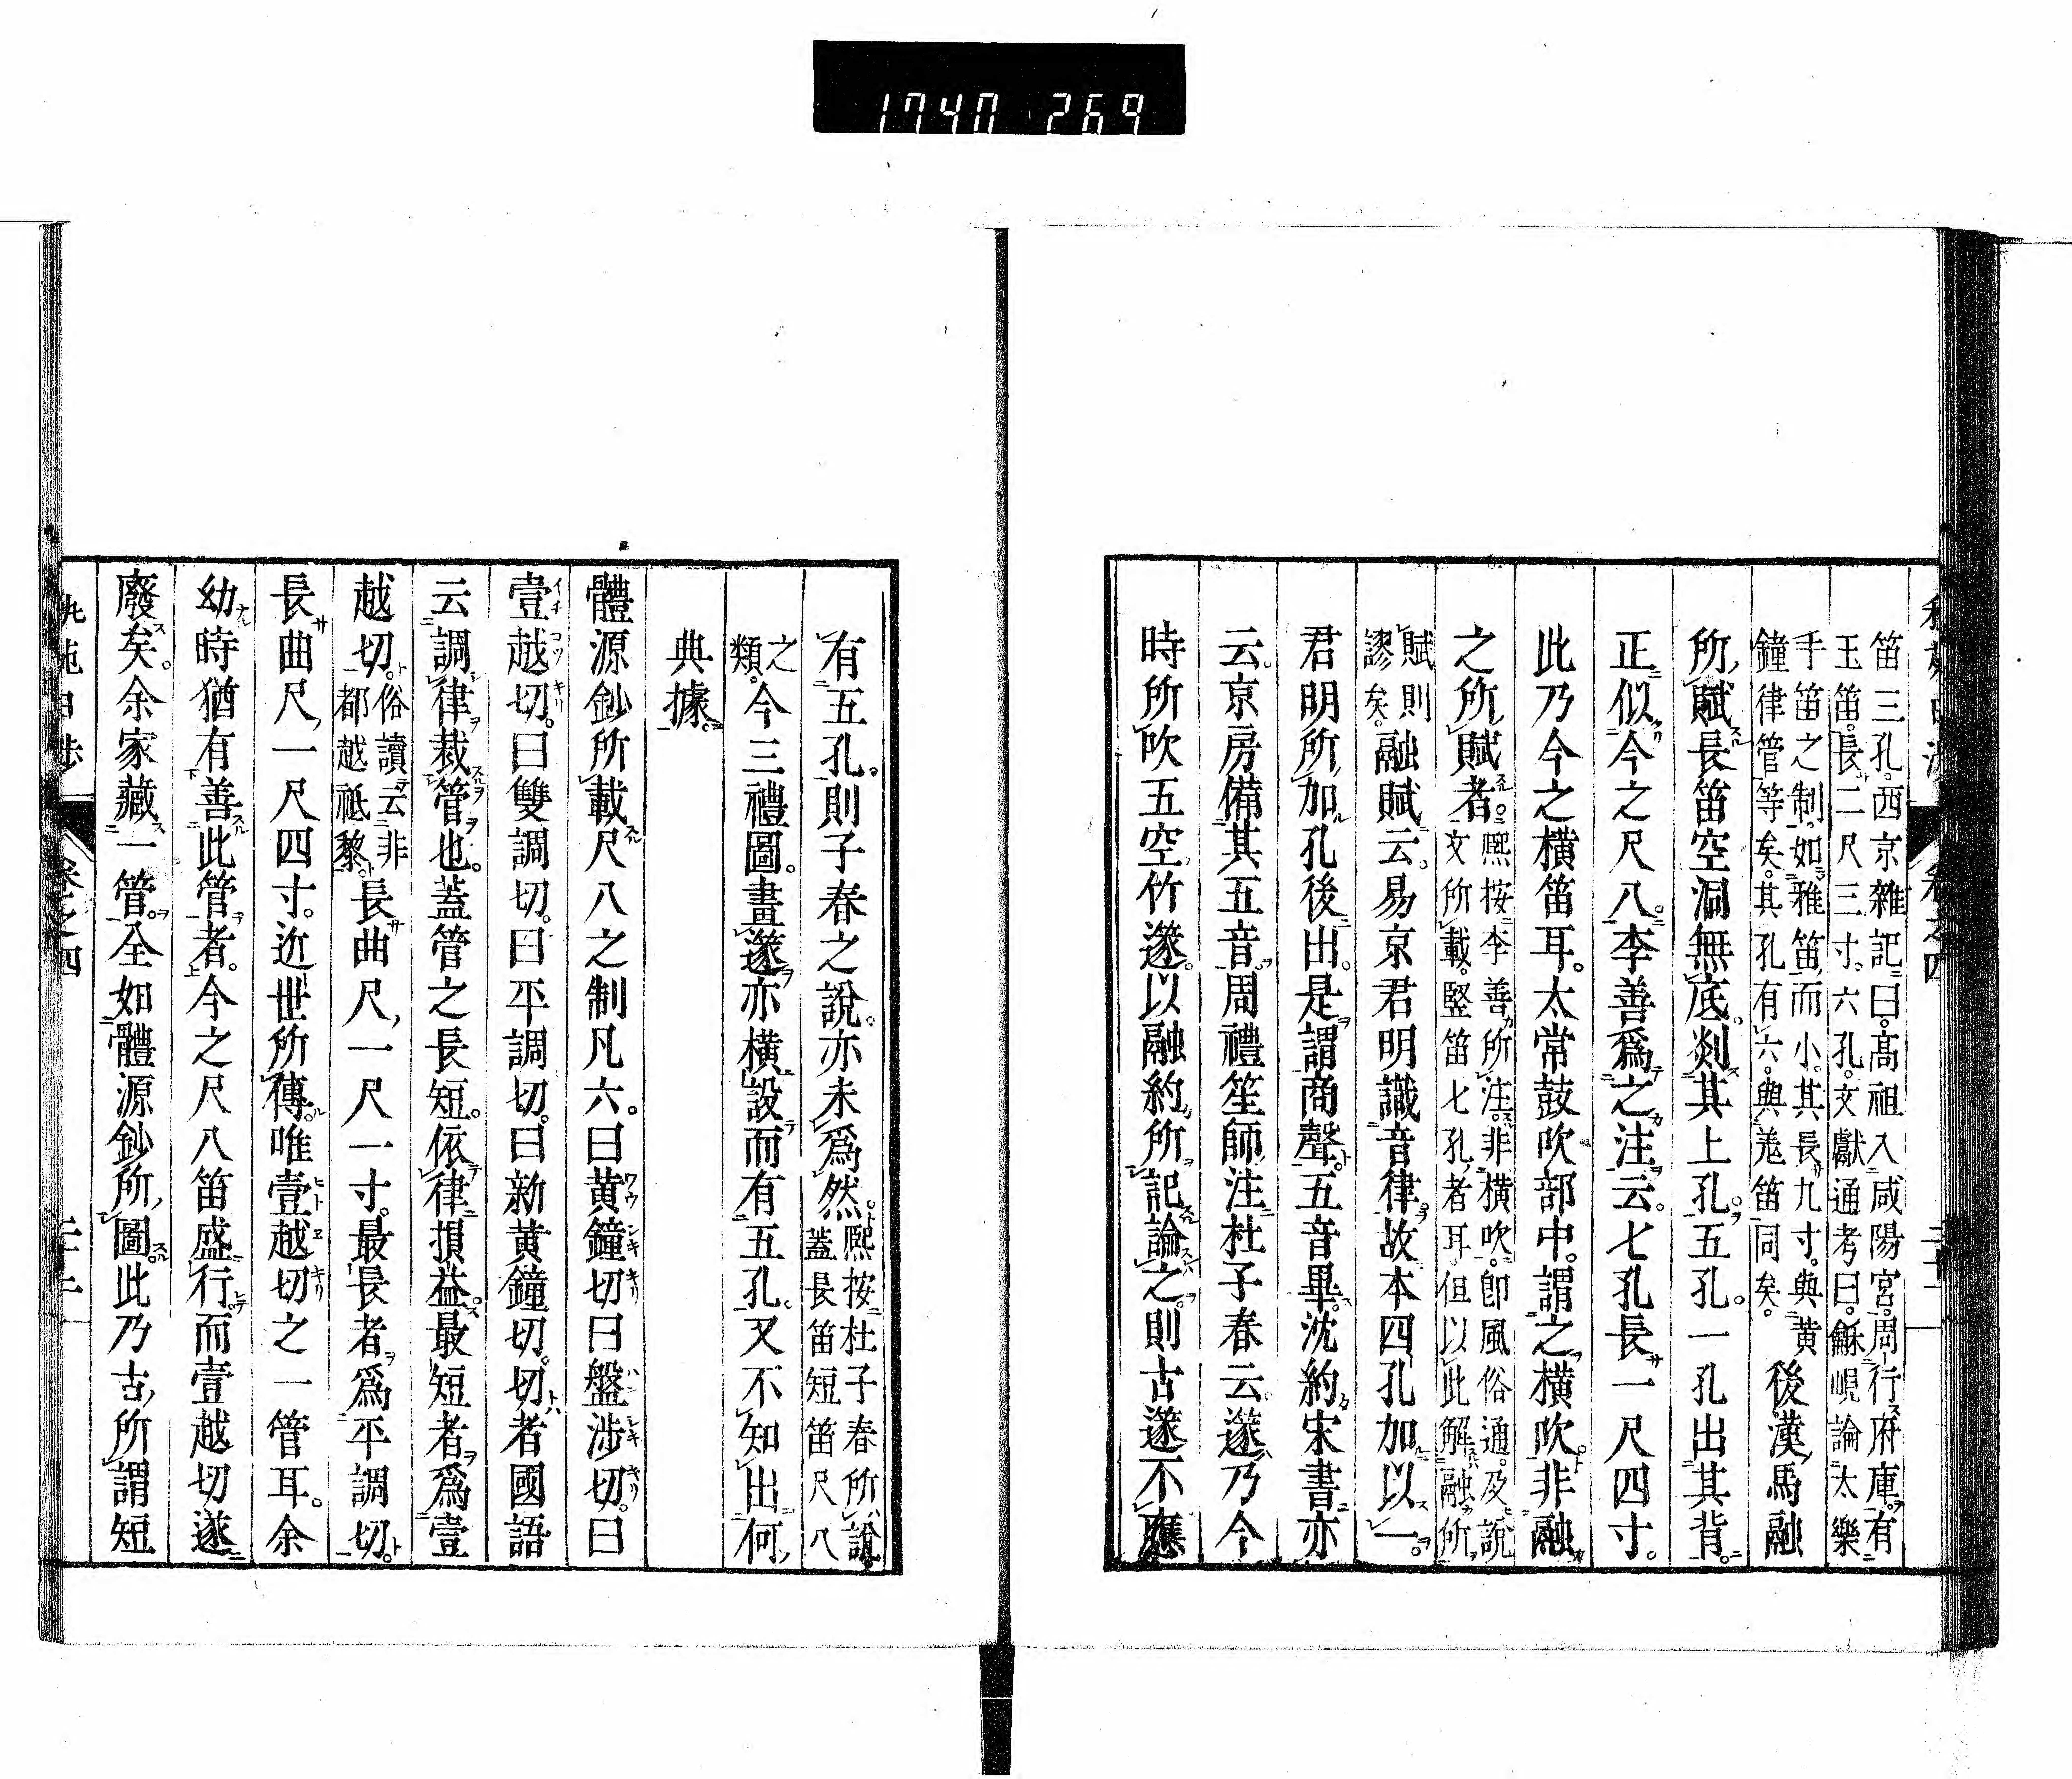 1740 269
笛三孔。西京雜記曰。高祖入咸陽宮。周行府庫。有
玉笛。長二尺三寸。六孔。文獻通考曰。龢峴論太樂
手笛之制。如雅笛。而小。其長九寸。與黃
鐘律管等矣。其孔有六。與羗笛同矣。
後漢馬融
所賦長笛空洞無底。剡其上孔。五孔。一孔出其背。
正似今之尺八。李善爲之注云。七孔長一尺四寸。
此乃今之橫笛耳。太常鼓吹部中。謂之橫吹。非融
之所賦者。
熙按李善所注。非橫吹。卽風俗通。及說
文所載。竪笛七孔者耳。但以此解融所
賦則
謬矣。
融賦云。易京君明識音律。故本四孔加以一。
君明所加孔後出。是謂商聲。五音畢。沈約宋書亦
云。京房備其五音。周禮笙師注杜子春云。篴乃今
時所吹五空竹篴。以融約所記論之。則古篴不應
有五孔。則子春之說。亦未爲然。
熙按杜子春所說。
蓋長笛短笛尺八
之
類。
今三禮圖。畫篴亦橫設而有五孔。又不知出何
典據。
體源鈔所載尺八之制凡六。曰黃鐘切曰盤涉切。曰
壹越切。曰雙調切。曰平調切。曰新黃鐘切。切者國語
云調律裁管也。蓋管之長短。依律損益。最短者爲壹
越切。
俗讀云非
都越祗黎。
長曲尺一尺一寸。最長者爲平調切。
長曲尺一尺四寸。近世所傳。唯壹越切之一管耳。余
幼時猶有善此管者。今之尺八笛盛行而壹越切遂
廢矣。余家藏一管。全如體源鈔所圖。此乃古所謂短
卷之四